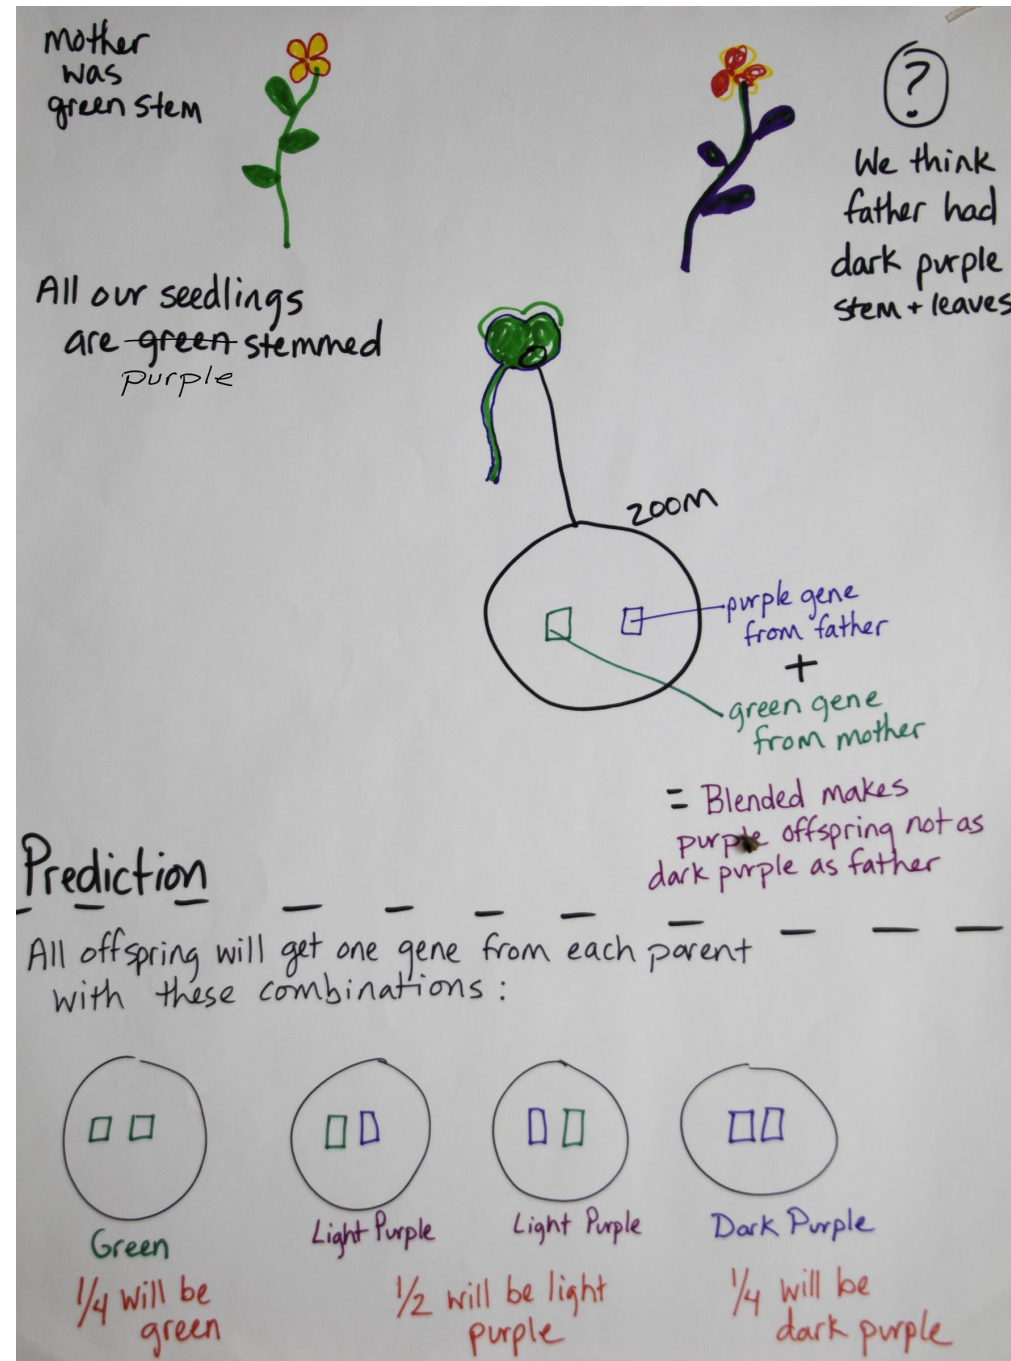 Mother
was
green stem
?
We think
father had
dark purple
stem + leaves
All our seedlings
are green stemmed
purple
ZOOM
purple gene
from father
+
green gene
from mother
= Blended makes
purple offspring not as
dark purple as father
Prediction
All offspring will get one gene from each parent
with these combinations:
Green
Light Purple
Light Purple
Dark Purple
1/4 will be
green
1/2 will be light
purple
1/4 will be
dark purple